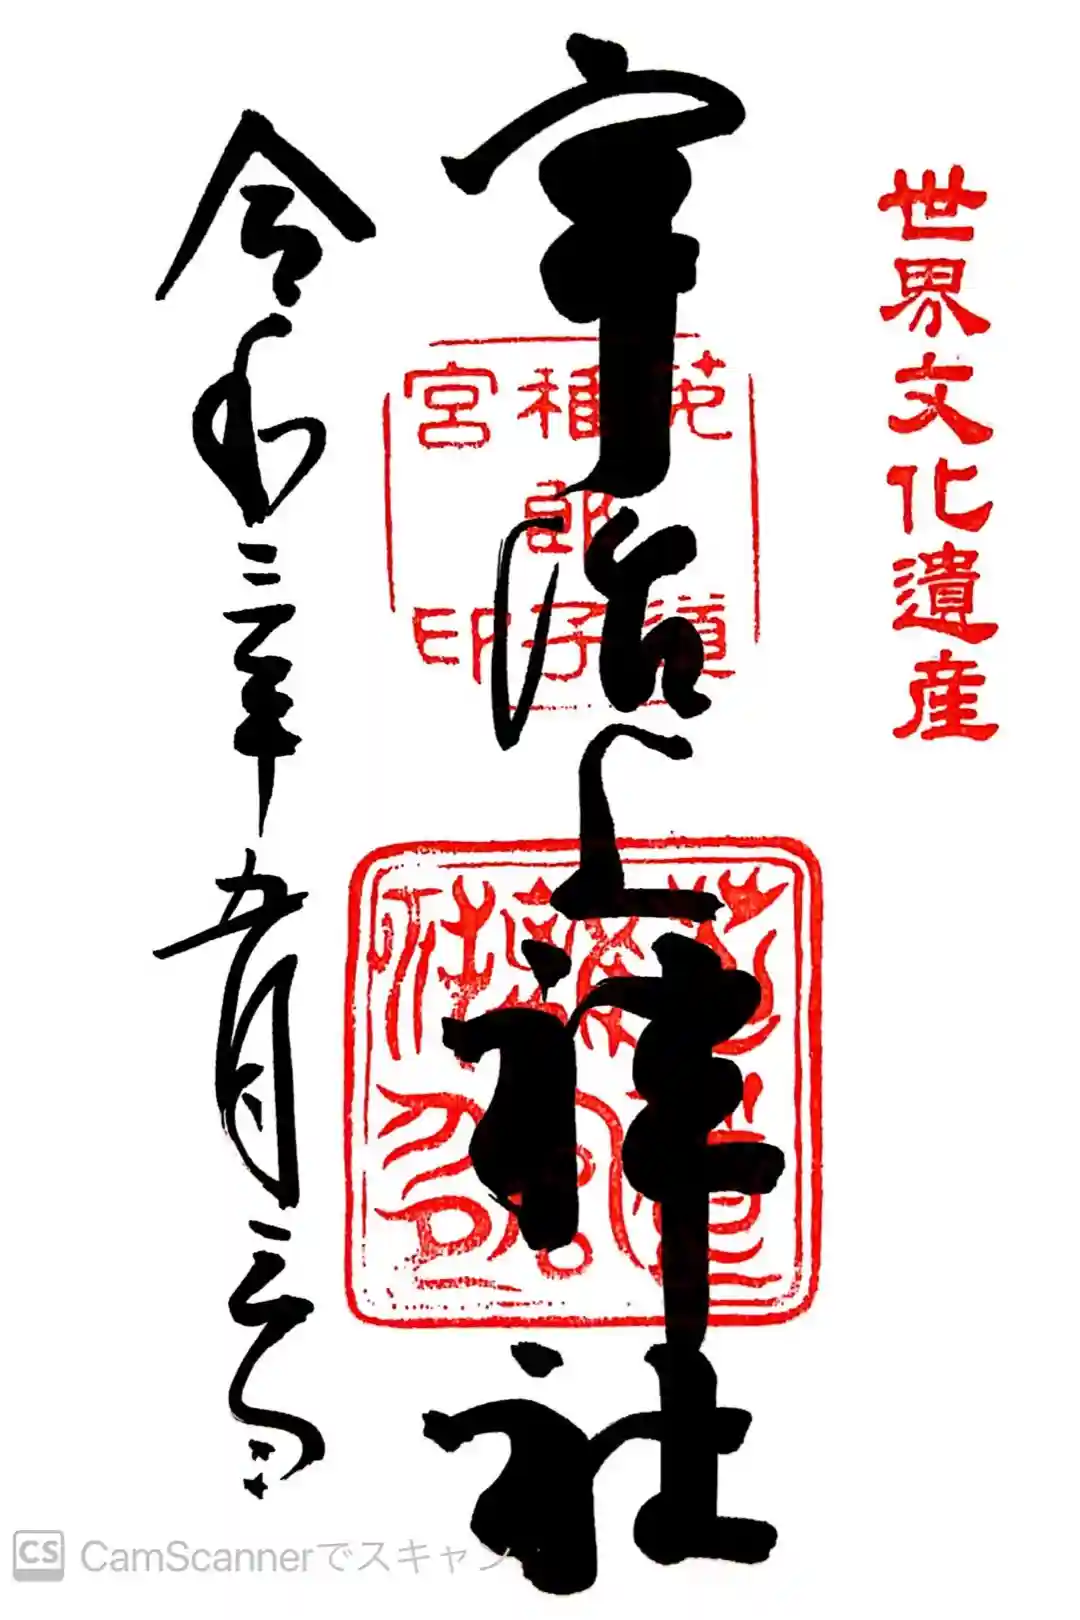 世界文化遺産
宇治上神社
菟道
稚郎子
宮印
令和三年五月三日
CamScannerでスキャン